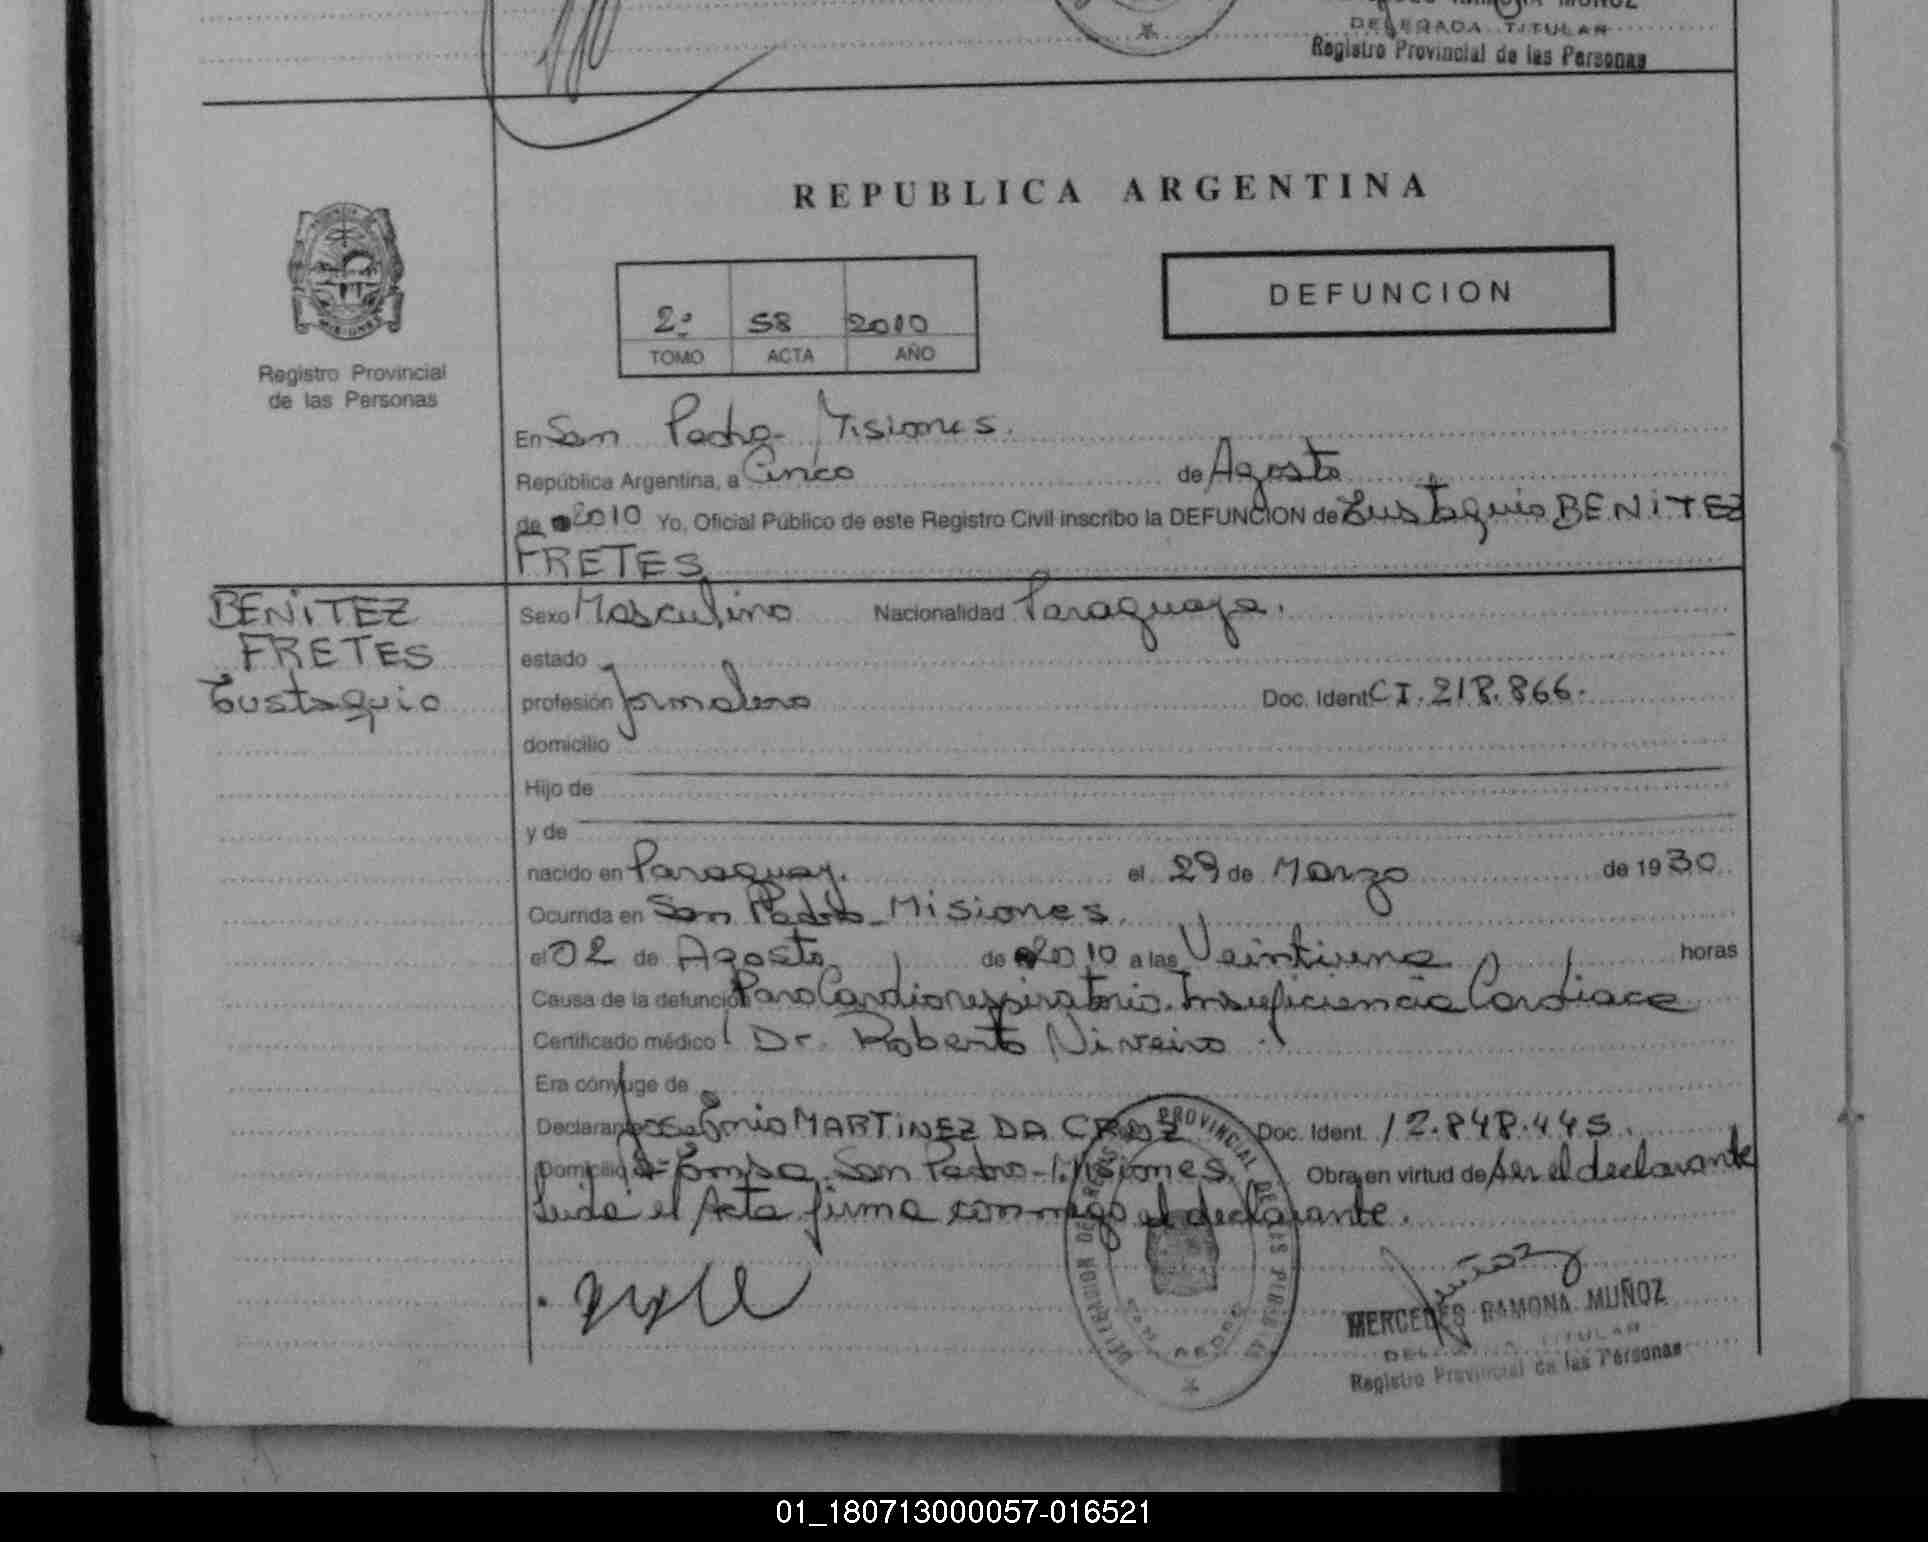 DELEGADA TITULAR
Registro Provincial de las Personas
REPUBLICA ARGENTINA
DEFUNCION
2º 58 2010
TOMO ACTA AÑO
Registro Provincial
de las Personas
En San Pedro - Misiones.
República Argentina, a Cinco de Agosto
de 2010 Yo, Oficial Público de este Registro Civil inscribo la DEFUNCION de Eustaquio BENITEZ
FRETES
BENITEZ
FRETES
Eustaquio
Sexo Masculino Nacionalidad Paraguaya.
estado
profesión Jornalero Doc. Ident CI. 218.866.
domicilio
Hijo de
y de
nacido en Paraguay. el 29 de Marzo de 1930
Ocurrida en San Pedro - Misiones.
el 02 de Agosto de 2010 a las Veintiuna horas
Causa de la defunción Paro Cardiorespiratorio. Insuficiencia Cardiaca
Certificado médico Dr. Roberto
Era cónyuge de
Declarante MARTINEZ DA CRUZ Doc. Ident. 12.848.445.
Domicilio San Pedro - Misiones. Obra en virtud de ser el declarante
Leida el Acta firma conmigo el declarante.
PROVINCIAL DE LAS PERSONAS
Muñoz
MERCEDES RAMONA MUÑOZ
TITULAR
Registro Provincial de las Personas
01_180713000057-016521